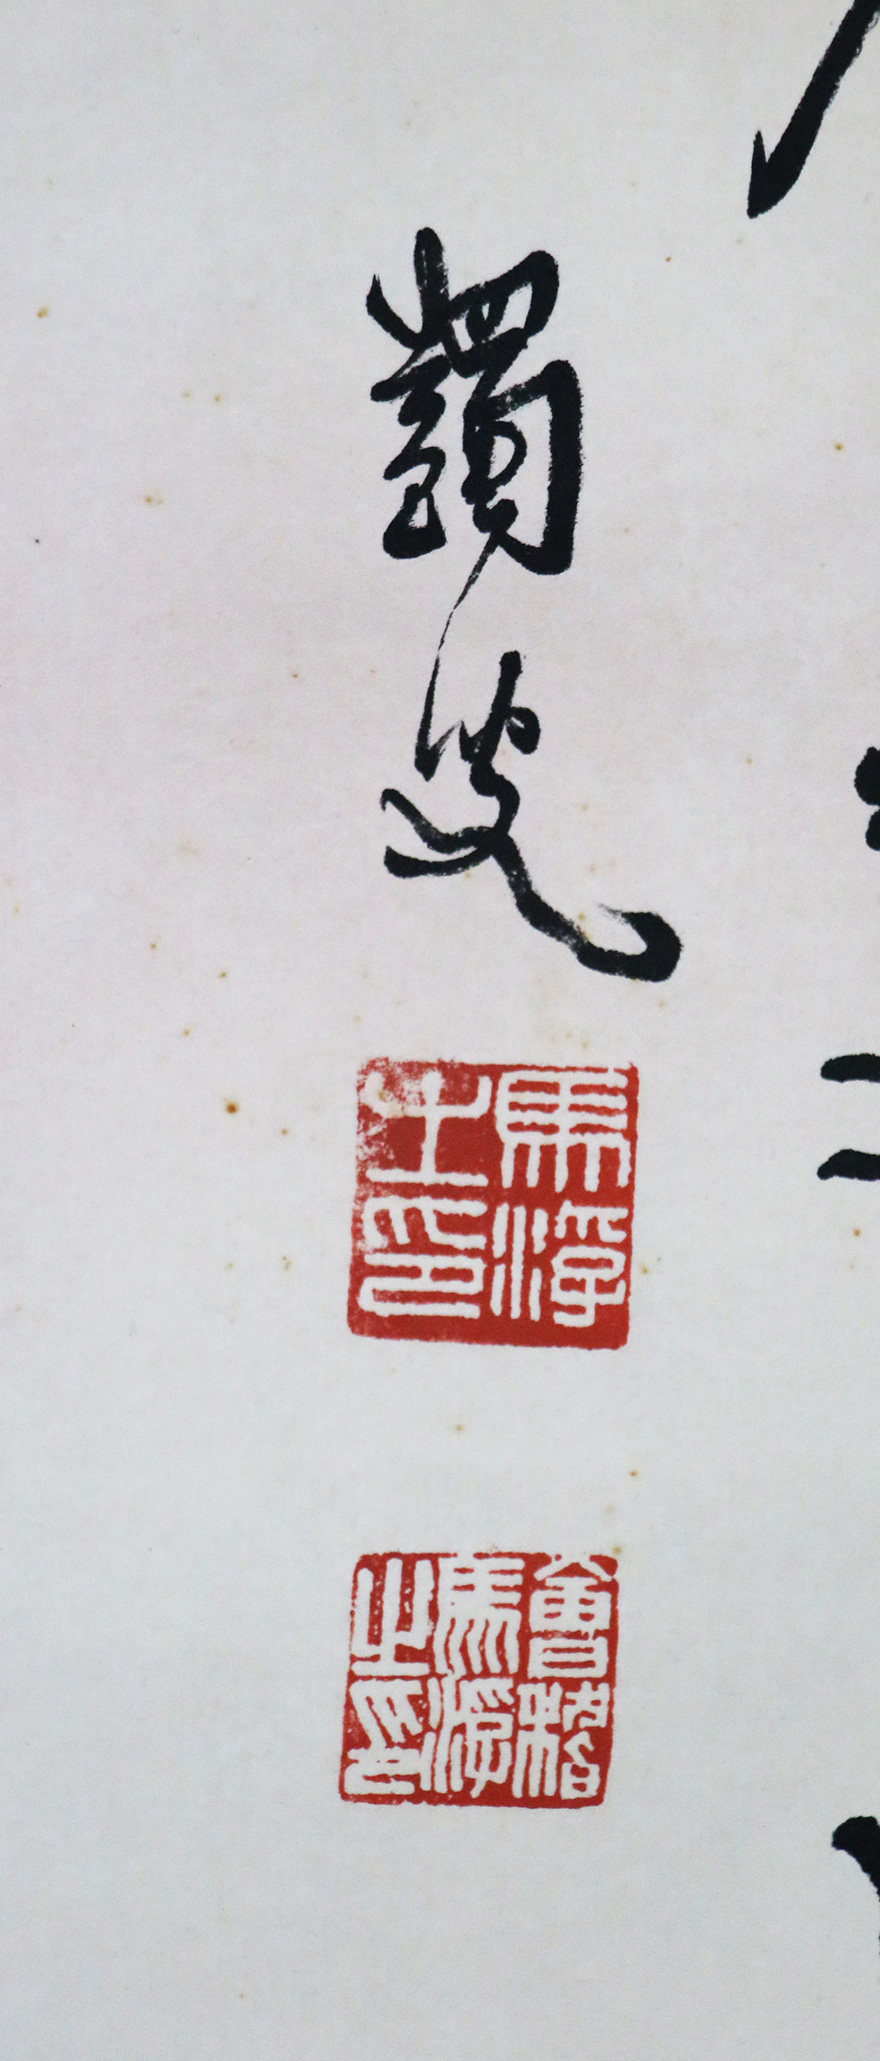 蠲叟
馬浮
之印
會稽
馬浮
之印